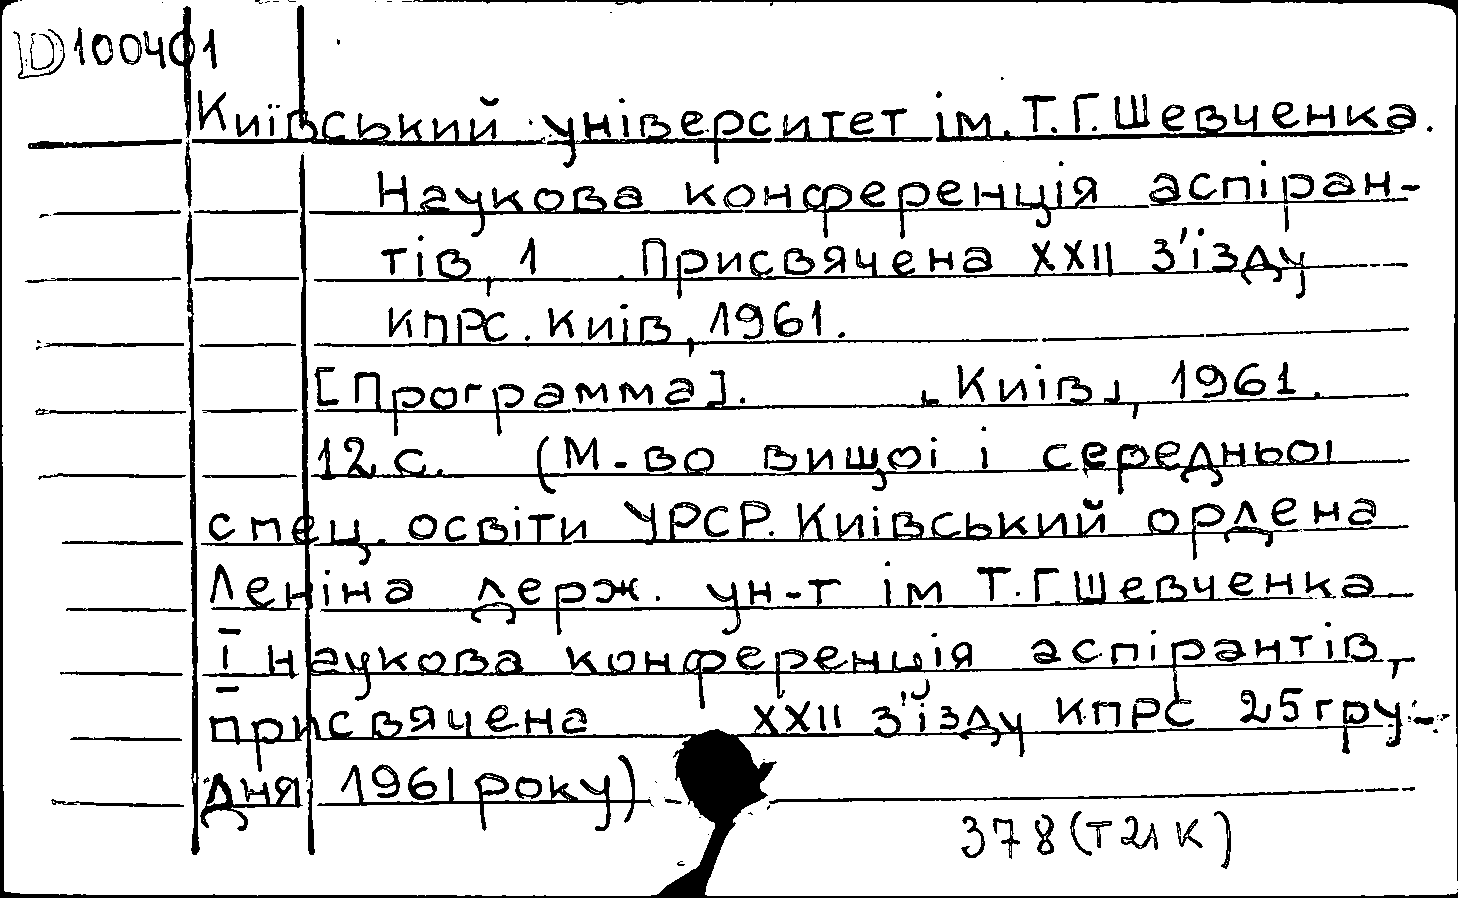 D100401
Київський університет ім. Т.Г. Шевченка.
Наукова конференція аспіран-
тів, 1 . Присвячена XXII з'їзду
КПРС. Київ, 1961.
[Программа]. [Київ], 1961.
12 с. (М-во вищоі і середньоі
спец. освіти УРСР. Київський ордена
Леніна держ. ун-т ім Т.Г Шевченка
I наукова конференція аспірантів,
присвячена XXII з'їзду КПРС 25 гру-
дня 1961 року)
378(Т21К)